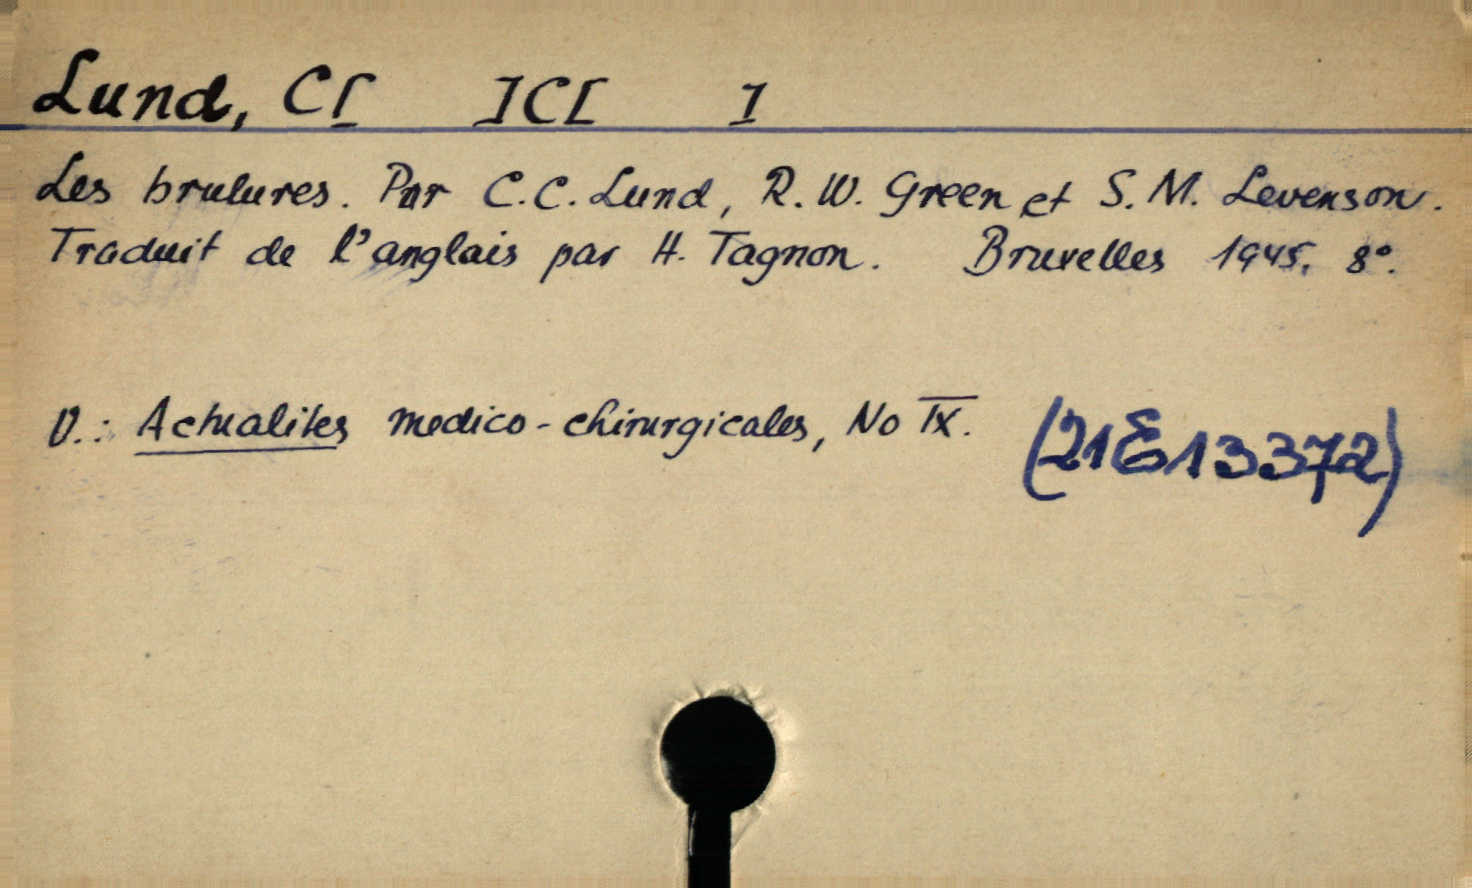 Lund, C[ ]C[ I
Les brulures. Par C.C. Lund, R. W. Green et S. M. Levenson.
Traduit de l'anglais par H. Tagnon. Bruxelles 1945. 8°.
V.: Actualites medico-chirurgicales, No IX. (21E13372)